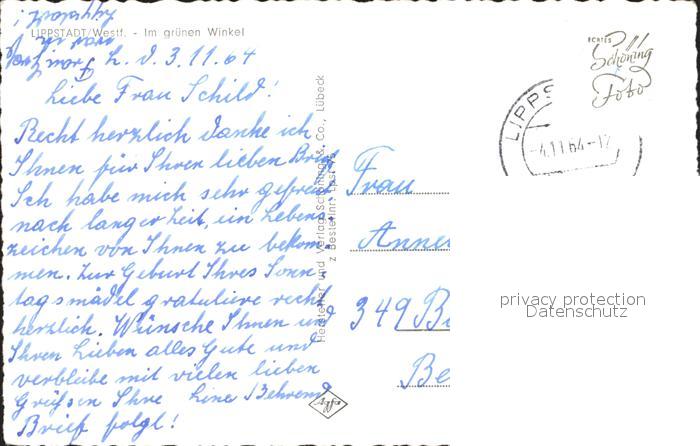 LIPPSTADT/Westf. - Im grünen Winkel
L. d. 3.11.64
Liebe Frau Schild!
Recht herzlich danke ich
Ihnen für Ihren lieben Brief
Ich habe mich sehr gefreut
nach langer Zeit, ein Lebens-
zeichen von Ihnen zu bekom-
men. Zur Geburt Ihres Sonn-
tagsmädel gratuliere recht
herzlich. Wünsche Ihnen und
Ihren Lieben alles Gute und
verbleibe mit vielen lieben
Grüßen Ihre Line Behrend
Brief folgt!
Hersteller und Verlag Schöning & Co., Lübeck
Agfa
ECHTES
Schöning
Foto
LIPPS
-4.11.64-12
Frau
Anne
349 B
Be
privacy protection
Datenschutz